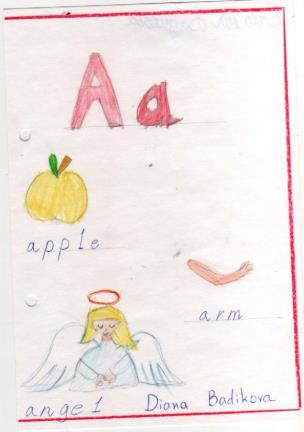 Aa
apple
arm
angel Diana Badikova